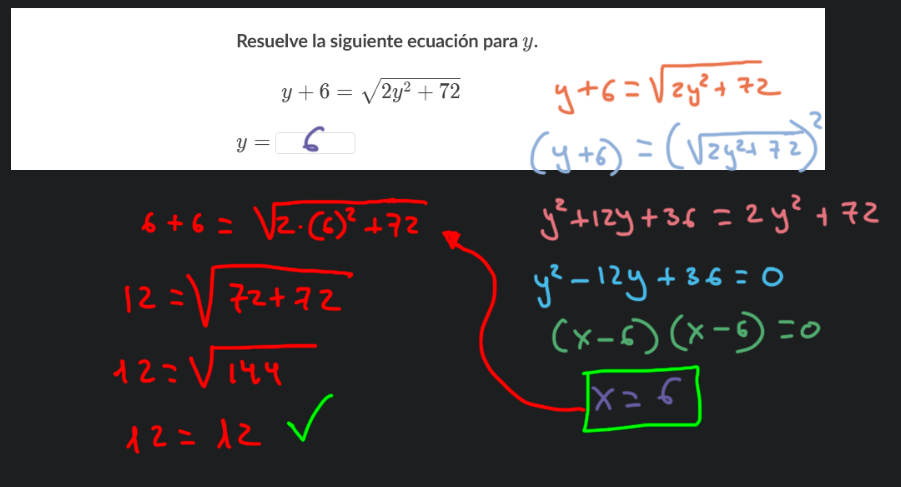 Resuelve la siguiente ecuación para y.
y + 6 = √(2y² + 72)
y = 6
y+6 = √(2y² + 72)
(y+6) = (√(2y² + 72))²
y² + 12y + 36 = 2y² + 72
y² - 12y + 36 = 0
(x-6)(x-6) = 0
x = 6
6 + 6 = √(2·(6)² + 72)
12 = √(72+72)
12 = √144
12 = 12 ✓